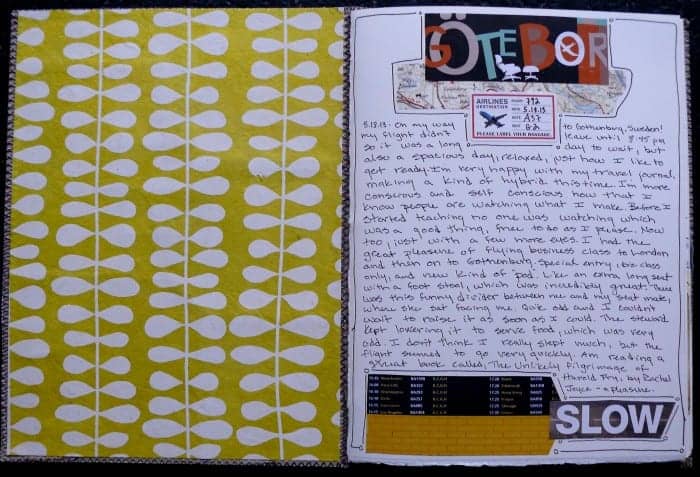 GÖTEBOR
AIRLINES
DESTINATION
FLIGHT 792
DATE 5.18.13
GATE A37
SEAT G2
PLEASE LABEL YOUR BAGGAGE
5.18.13 - On my way to Gothenburg, Sweden!
my flight didn't leave until 8:45 pm
so it was a long day to wait, but
also a spacious day, relaxed, just how I like to
get ready. I'm very happy with my travel journal,
making a kind of hybrid this time. I'm more
conscious and self conscious now that I
know people are watching what I make. Before I
started teaching no one was watching which
was a good thing, free to do as I please. Now
too, just with a few more eyes. I had the
great pleasure of flying business class to London
and then on to Gothenburg. Special entry, biz class
only, and new kind of "pod". Like an extra long seat
with a foot stool, which was incredibly great. There
was this funny divider between me and my "seat mate",
where she sat facing me. Quite odd and I couldn't
wait to raise it as soon as I could. The steward
kept lowering it to serve food, which was very
odd. I don't think I really slept much, but the
flight seemed to go very quickly. Am reading a
great book called, The Unlikely Pilgrimage of
Harold Fry, by Rachel
Joyce - a pleasure.
SLOW